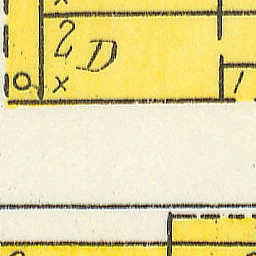 x
2 D
o x 1